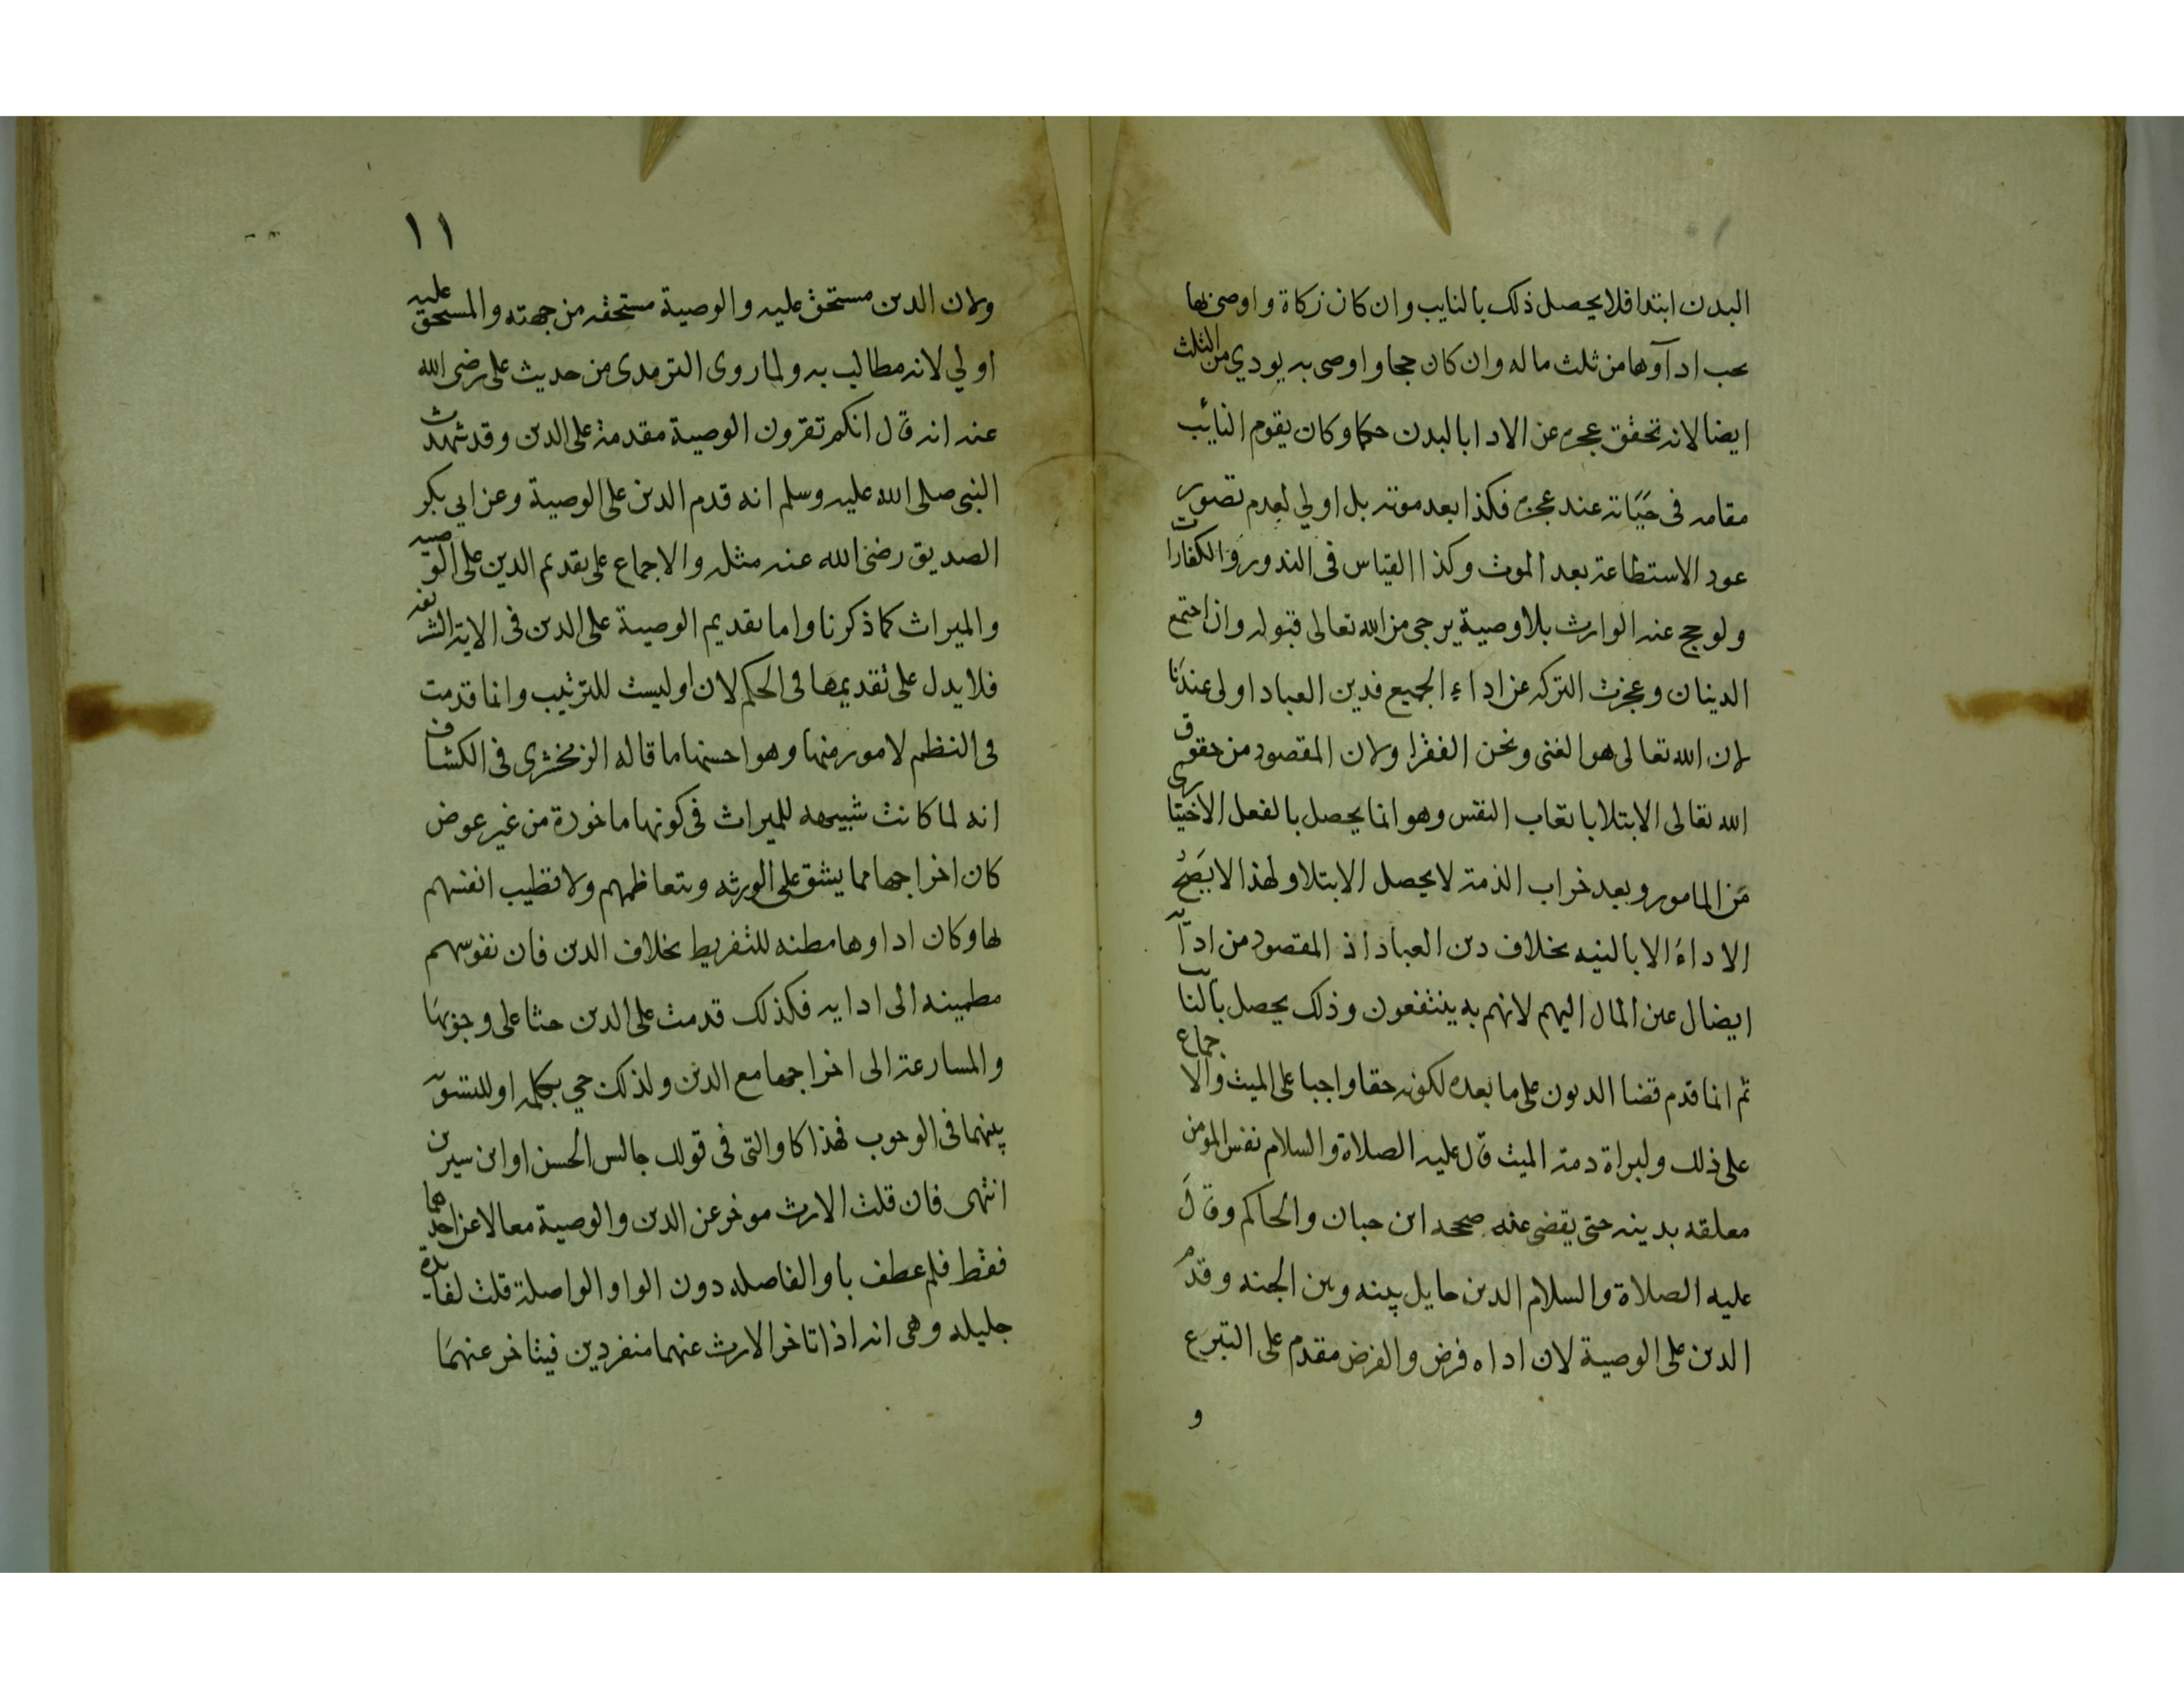 البدن ابتدا فلا يحصل ذلك بالنايب وان كان زكاة واوصى بها
يجب ادآوها من ثلث ماله وان كان حجا واوصى به يودي من الثلث
ايضا لانه تحقق عجزه عن الادا بالبدن حكما وكان يقوم النائب
مقامه فى حَيَاته عند عجزه فكذا بعد موته بل اولي لعدم تصور
عود الاستطاعة بعد الموت وكذا القياس فى الندور والكفارات
ولو حج عنه الوارث بلا وصية يرجى من الله تعالى قبوله وان اجتمع
الدينان وعجزت التركه عن اداء الجميع فدين العباد اولى عندنَا
لان الله تعالى هو الغنى ونحن الفقرا ولان المقصود من حقوق
الله تعالى الابتلا باتعاب النفس وهو انما يحصل بالفعل الاختيارى
مَن المامور وبعد خراب الذمة لا يحصل الابتلا ولهذا لا يَصِحُ
الاداءَ الا بالنيه بخلاف دين العباد اذ المقصود من ادآيه
ايصال عين المال اليهم لانهم به ينتفعون وذلك يحصل بالنايب
ثم انما قدم قضا الديون على ما بعده لكونه حقا واجبا على الميت والاجماع
على ذلك ولبراة دمة الميث قال عليه الصلاة والسلام نفس المؤمن
معلقه بدينه حتى يقضى عنه صححه ابن حبان والحاكم وقالَ
عليه الصلاة والسلام الدين حايل بينه وبين الجنه وقدم
الدين على الوصية لان اداه فرض والفرض مقدم على التبرع
و
١١
ولان الدين مستحق عليه والوصية مستحقه من جهته والمستحق عليه
اولي لانه مطالب به ولما روى الترمدى من حديث على رضى الله
عنه انه قال انكم تقرون الوصية مقدمة على الدين وقد شهدت
النبى صلى الله عليه وسلم انه قدم الدين على الوصية وعن ابي بكر
الصديق رضى الله عنه مثله والاجماع على تقديم الدين على الوصيه
والميراث كما ذكرنا واما تقديم الوصية على الدين فى الاية الشريفه
فلا يدل على تقديمها فى الحكم لان او ليست للترتيب وانما قدمت
فى النظم لامور منها وهو احسنها ما قاله الزمخشرى فى الكشاف
انه لما كانت شبيهه للميراث فى كونها ماخودة من غير عوض
كان اخراجها مما يشق على الورثه ويتعاظمهم ولا تطيب انفسهم
بها وكان اداوها مطنه للتفريط بخلاف الدين فان نفوسهم
مطمينه الى ادايه فكذلك قدمت على الدين حثا على وجوبهَا
والمسارعة الى اخراجها مع الدين ولذلك جي بكلمه او للتسويه
بينهما فى الوجوب فهذا كاو التى فى قولك جالس الحسن او ابن سيرين
انتهى فان قلت الارث موخر عن الدين والوصية معا لا عن احدهما
فقط فلم عطف باو الفاصله دون الواو الواصلة قلت لفايدة
جليله وهى انه اذا تاخر الارث عنهما منفردين فيتاخر عنهمَا